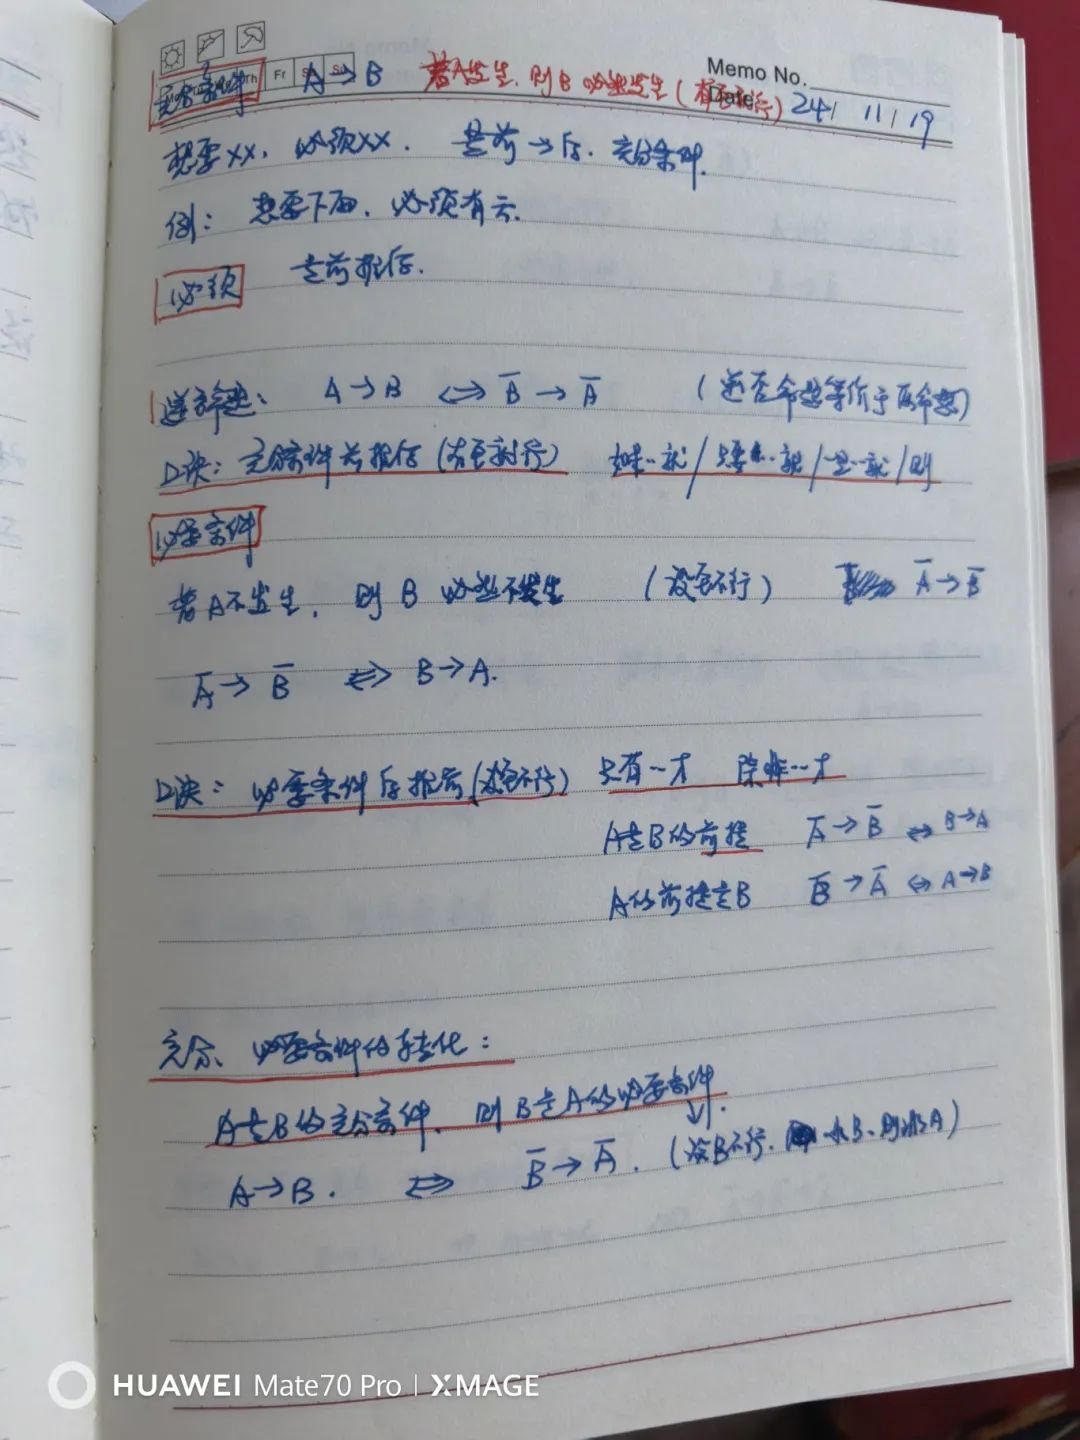 Memo No.
Th Fr S Su
Date 24 / 11 / 19
充分条件 A → B 若A发生,则B必然发生(有它就行)
想要XX,必须XX. 是前→后.充分条件.
例: 想要下雨,必须有云.
必须 是前推后.
逆否命题: A → B ⟺ B̅ → A̅ (逆否命题等价于原命题)
口诀: 充分条件前推后(有它就行) 如果…就/只要…就/一旦…就/则
必要条件
若A不发生, 则B必然不发生 (没它不行) A̅ → B̅
A̅ → B̅ ⟺ B → A.
口诀: 必要条件后推前(没它不行) 只有…才 除非…才
A是B的前提 A̅ → B̅ ⟺ B→A
A的前提是B B̅ → A̅ ⟺ A→B
充分、必要条件的转化:
A是B的充分条件, 则B是A的必要条件.
A → B. ⟺ B̅ → A̅. (没B不行. 非B、则非A)
HUAWEI Mate70 Pro | XMAGE